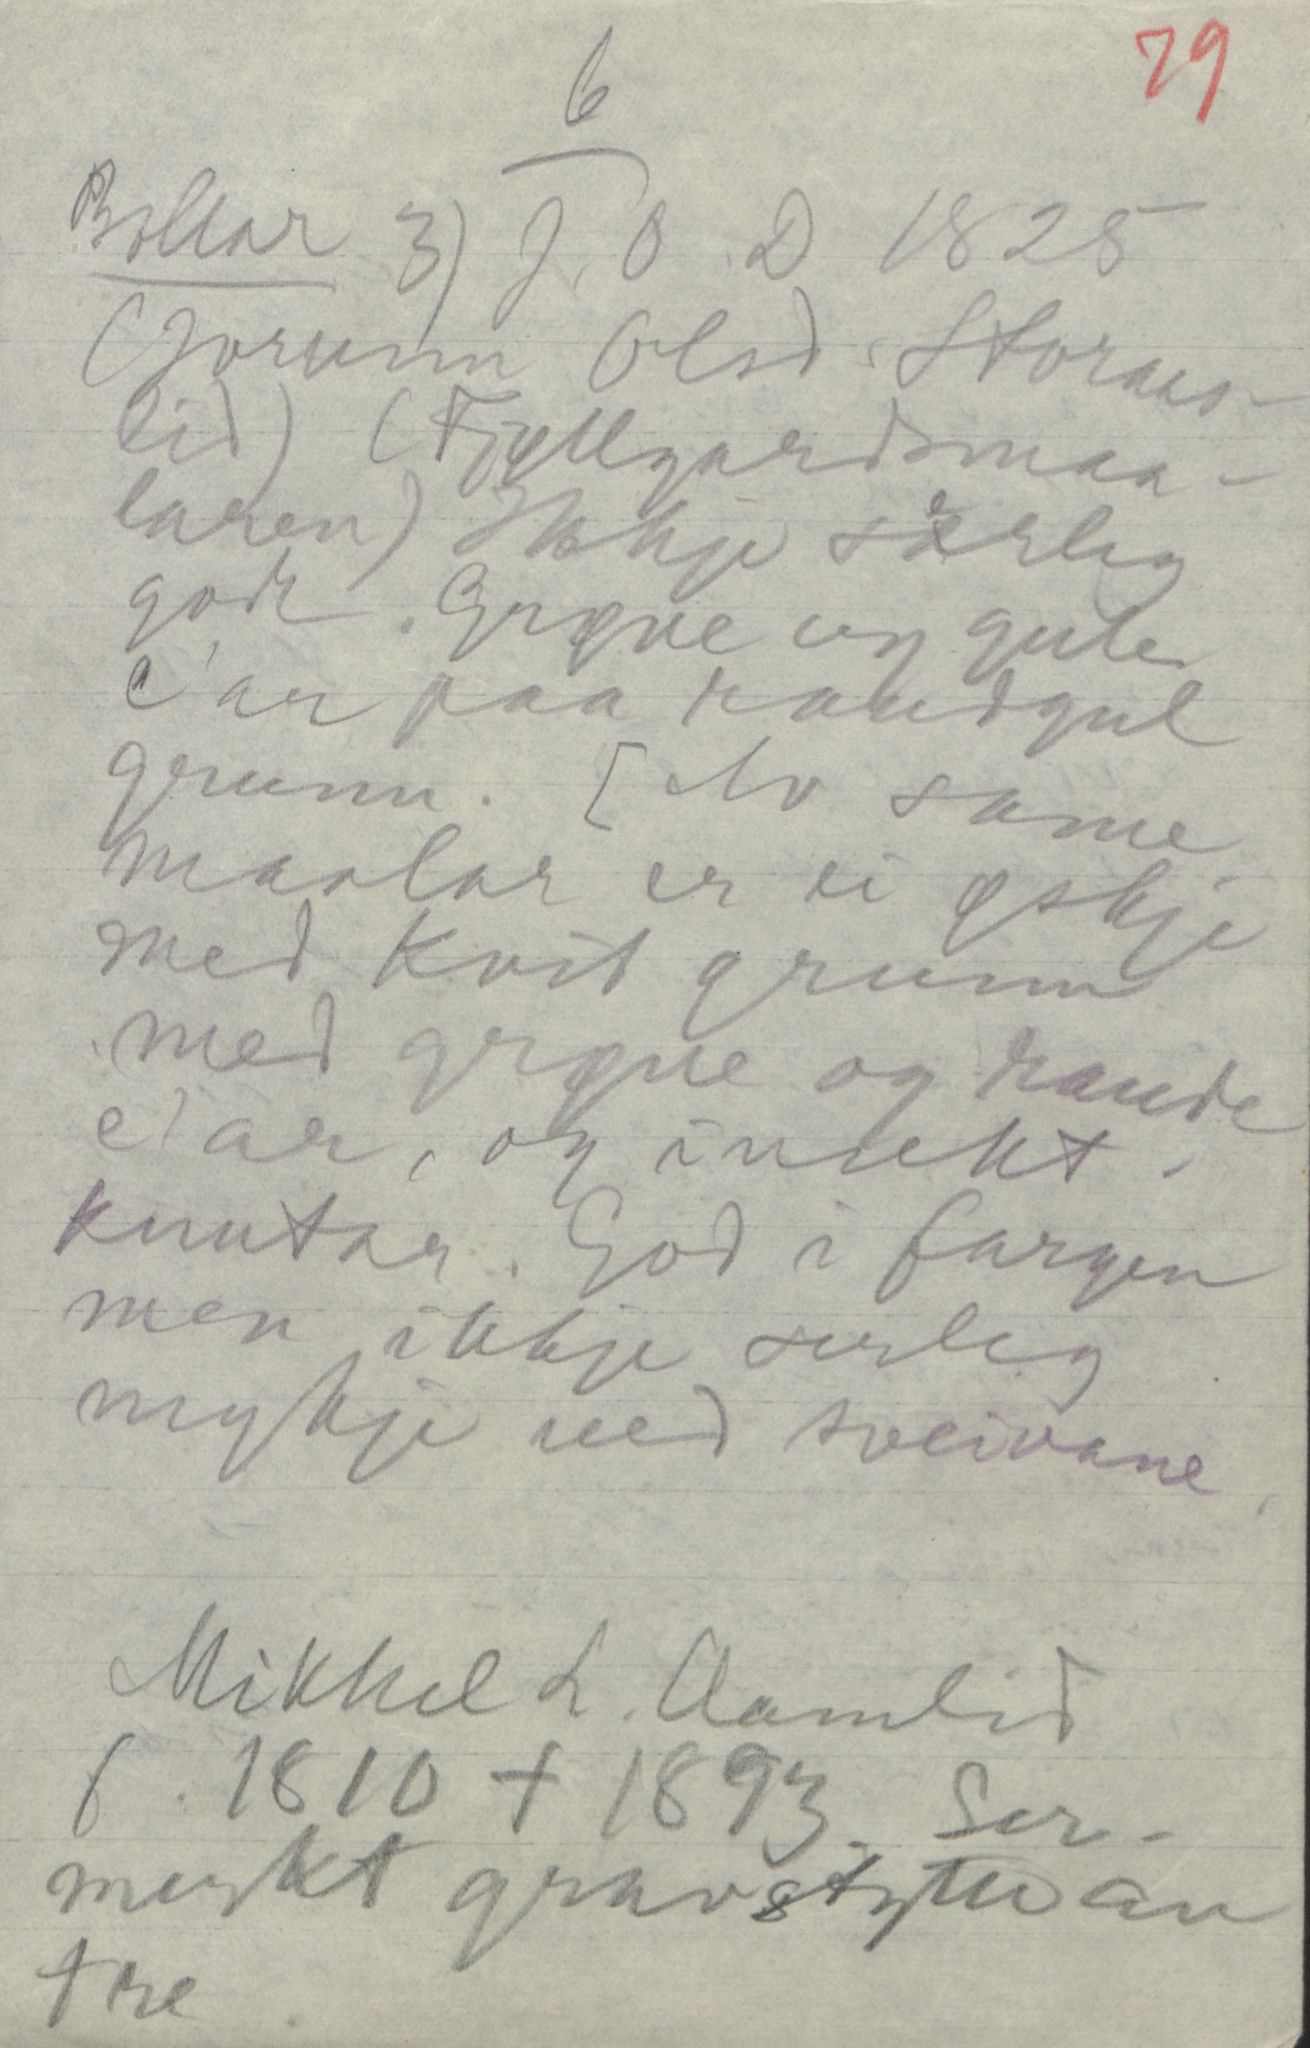 79
6
Bollar 3) J. O. D 1825
(Jorunn Olsd. Storaas-
lid) (Fjellgardsmaa-
laren) Ikkje særleg
god. Grøne og gule
c'ar paa raudgul
grunn. [Av same
maalar er ei øskje
med kvit grunn
med grøne og raude
c'ar, og insekt.
knutar. God i fargen
men ikkje serleg
mykje ved sveivane.
Mikkel L. Aamlid
f. 1810 + 1893. Ser-
merkt gravstytte av
tre.